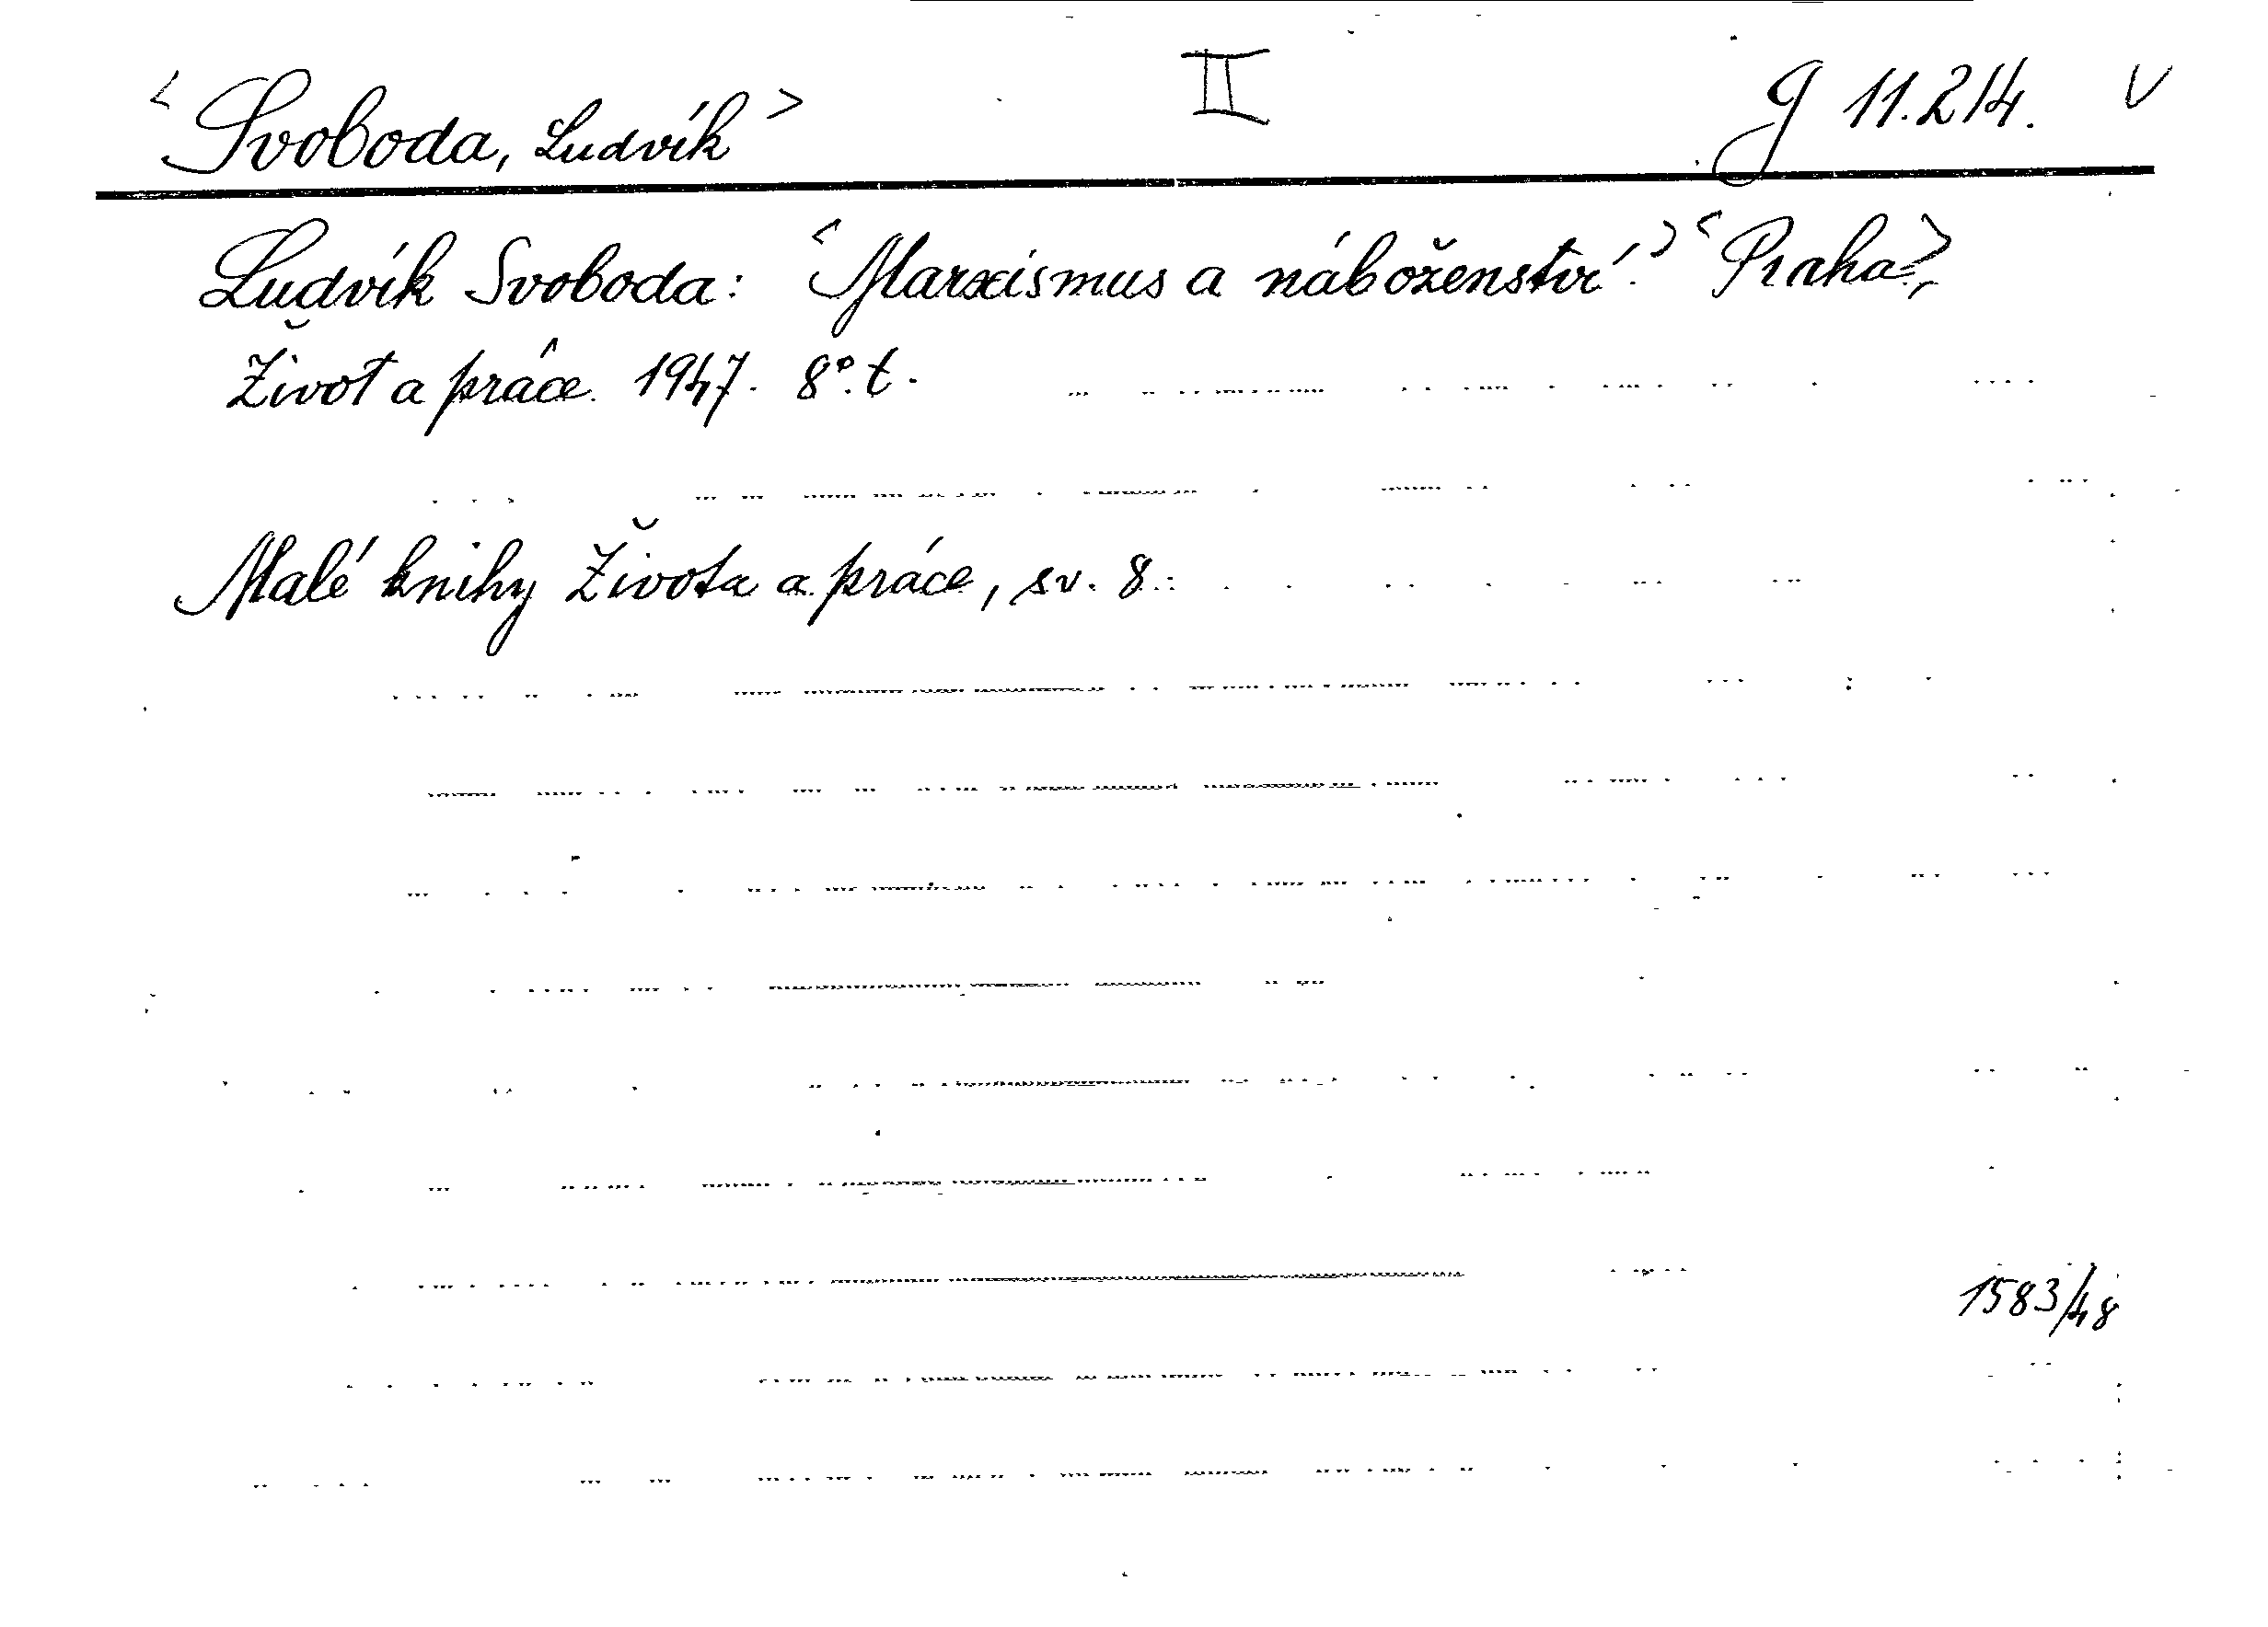 <Svoboda, Ludvík> II g 11.214. v
Ludvík Svoboda: <Marxismus a náboženství.> <Praha>,
Život a práce. 1947. 8°. t.
Malé knihy Života a práce, sv. 8.
1583/48